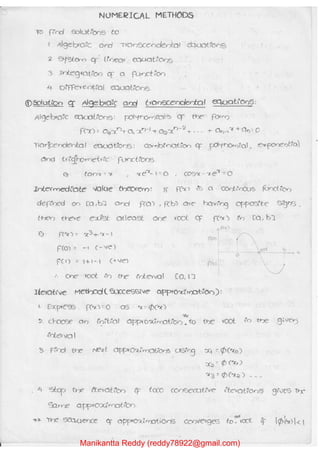 NUMERICAL METHODS
To find solutions to
1 Algebraic and Transcendental equations
2 System of linear equations
3 Integration of a function
4 Differential equations
① Solution of Algebraic and transcendental equations:
Algebraic equations: polynomials of the form
f(x) = a₀xⁿ + a₁xⁿ⁻¹ + a₂xⁿ⁻² + ..... + aₙ₋₁x + aₙ = 0
Transcendental equations: combination of polynomial, exponential
and trigonometric functions
tanx = x , xeˣ - 1 = 0 , cosx - xeˣ = 0
Intermediate value theorem: If f(x) is a continous function
defined on [a,b] and f(a), f(b) are having opposite signs,
then there exist atleast one root of f(x) in [a,b]
f(x) = x³ + x - 1
f(0) = -1 (-ve)
f(1) = 1+1-1 (+ve)
∴ one root in the interval [0,1]
Iterative Method (Successive approximation):
1. Express f(x)=0 as x = φ(x)
2. choose an initial approximation x₀ to the root in the given
interval
3. Find the next approximations using x₁ = φ(x₀)
x₂ = φ(x₁)
x₃ = φ(x₂) ---
4 Stop the iteration if two consecutive iterations gives the
same approximation
** The sequence of approximations converges to root if |φ'(x)|<1
Manikantta Reddy (reddy78922@gmail.com)